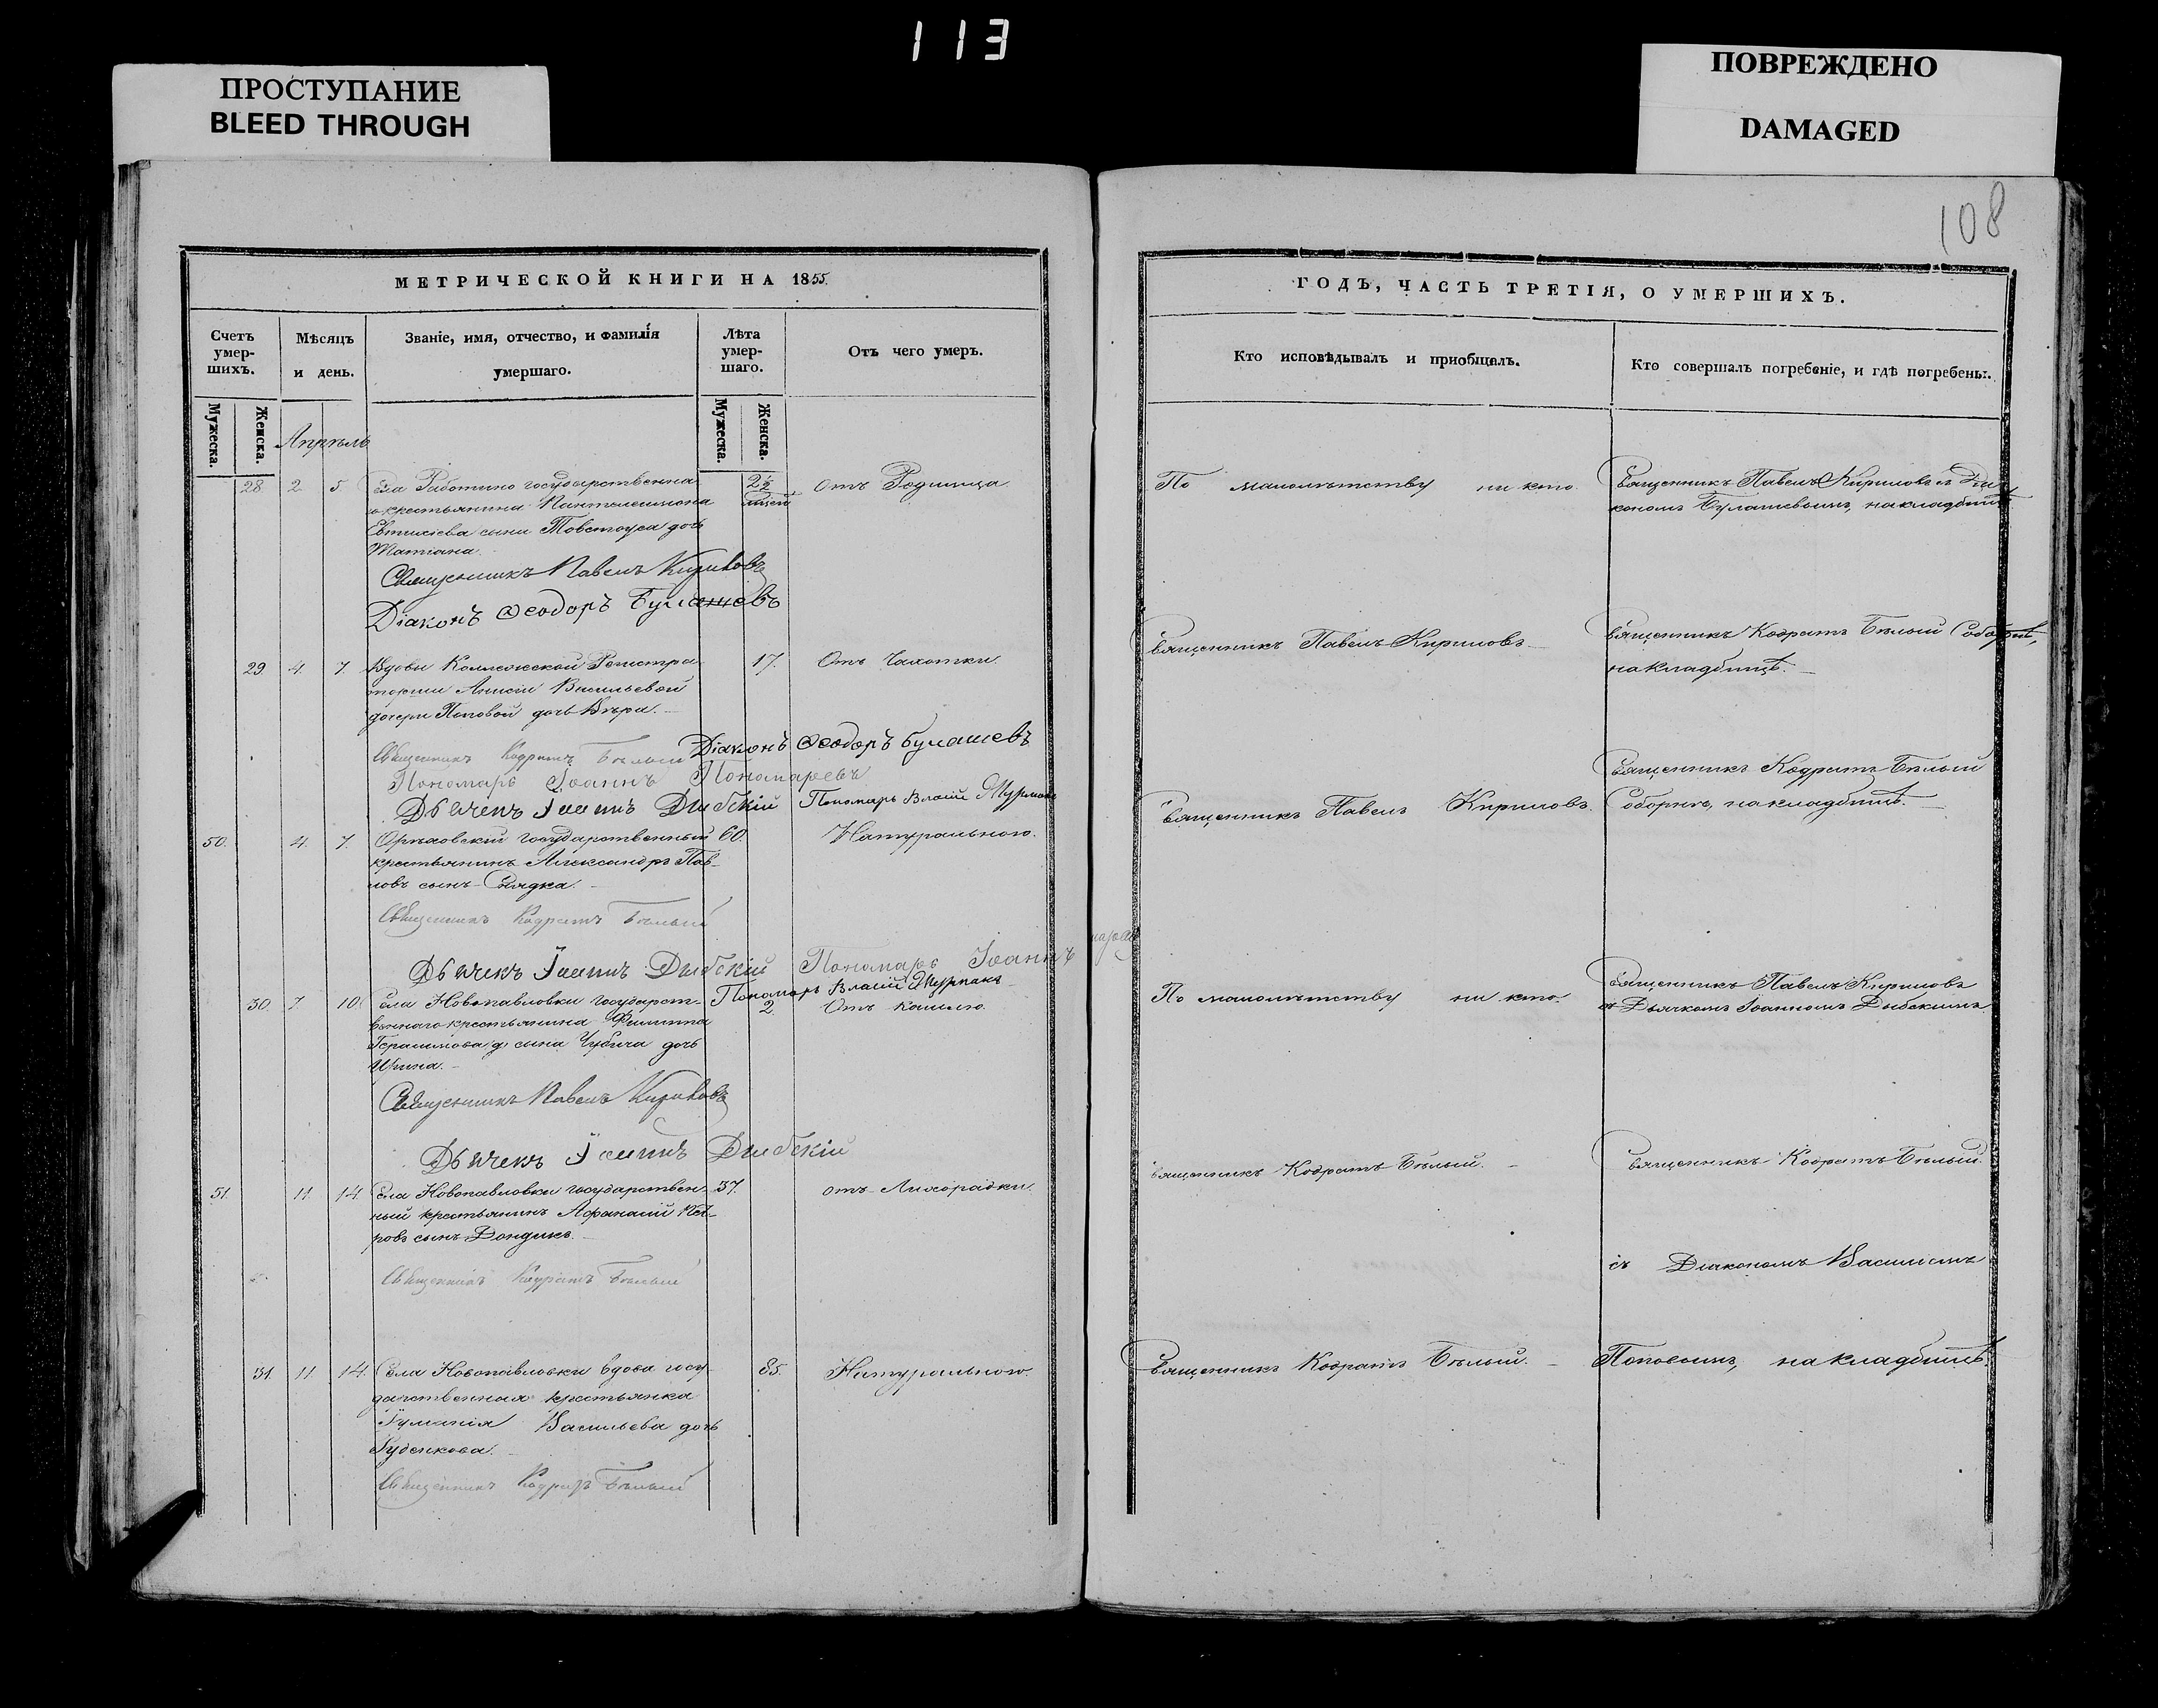 113
ПРОСТУПАНИЕ
BLEED THROUGH
ПОВРЕЖДЕНО
DAMAGED
108
МЕТРИЧЕСКОЙ КНИГИ НА 1855.
Счетъ умер-шихъ.
Мужеска.
Женска.
Мѣсяцъ и день.
Званіе, имя, отчество, и фамилія умершаго.
Лѣта умер-шаго.
Мужеска.
Женска.
Отъ чего умеръ.
Апрѣль
28. 2. 5. Села Работино государственна- 2½ Отъ Родимца
го крестьянина Пантелеимона
Евтихіева сына Товстоуса дочь
Татіана.
Священникъ Павелъ Кириловъ
Діаконъ Ѳеодоръ Булашевъ
29. 4. 7. Вдовы Коллежской Регистра- 17. Отъ Чахотки.
торши Анисіи Васильевой
дочери Поповой дочь Вѣра.
Священникъ Кодратъ Бѣлый Діаконъ Ѳеодоръ Булашевъ
Пономарь Іоаннъ Пономаревъ
Дьячекъ Іоаннъ Дыбскій Пономарь Власій
50. 4. 7. Орѣховскій государственный 60. Натурального.
крестьянинъ Александръ Пав-
ловъ сынъ
Священникъ Кодратъ Бѣлый
Дьячекъ Іоаннъ Дыбскій Пономарь Іоаннъ
Пономарь Власій
30. 7. 10. Села Новопавловки государст- 2. Отъ кашлю.
веннаго крестьянина Филиппа
Герасимова сына дочь
Ирина.
Священникъ Павелъ Кириловъ
Дьячекъ Іоаннъ Дыбскій
51. 11. 14. Села Новопавловки государствен- 37. отъ Лихорадки.
ный крестьянинъ Афанасій Пет-
ровъ сынъ Дондикъ.
Священникъ Кодратъ Бѣлый
31. 11. 14. Села Новопавловки вдова госу- 85. Натурального.
дарственная крестьянка
Васильева дочь
Руденкова.
Священникъ Кодратъ Бѣлый
ГОДЪ, ЧАСТЬ ТРЕТІЯ, О УМЕРШИХЪ.
Кто исповѣдывалъ и пріобщалъ.
Кто совершалъ погребеніе, и гдѣ погребены.
По малолѣтству ни кто. Священникъ Павелъ Кириловъ съ Діа-
кономъ Булашевымъ, на кладбищѣ
Священникъ Павелъ Кириловъ Священникъ Кодратъ Бѣлый Соборнѣ,
на кладбищѣ.
Священникъ Кодратъ Бѣлый
Священникъ Павелъ Кириловъ. Соборнѣ, на кладбищѣ.
Священникъ Павелъ Кириловъ
По малолѣтству ни кто. съ Дьячкомъ Іоанномъ Дыбскимъ
Священникъ Кодратъ Бѣлый. Священникъ Кодратъ Бѣлый
съ Діакономъ Василіемъ
Священникъ Кодратъ Бѣлый. Поповымъ, на кладбищѣ.